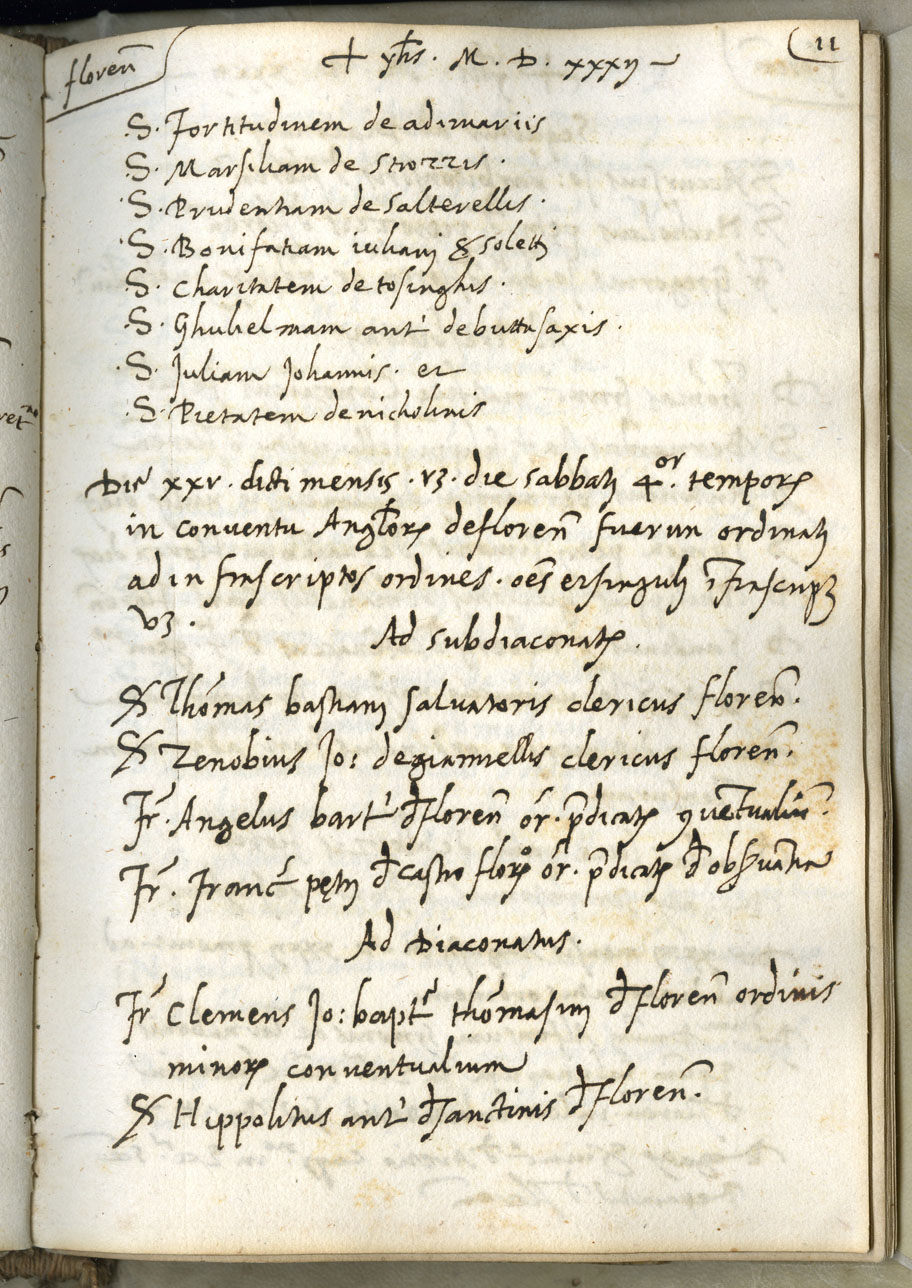 floren̄
11
+ yħs . M . D . xxxij —
S. Fortitudinem de adimariis
S. Marsiliam de strozzis .
S. Prudentiam de Salterellis .
S. Bonifatiam iuliani & soletti
S. Charitatem de tosinghis .
S. Ghulielmam ant̄ de buttasaxis .
S. Juliam Johannis . et
S. Pietatem de nicholinis
Die xxv . dicti mensis . vꝫ . die sabbati 4.or temporꝝ
in conventu Angl̄orꝝ de floren̄ fuerun ordinati
ad infrascriptos ordines . oēs et singuli īfrascripꝫ
vꝫ .
Ad subdiaconatꝫ .
Thom̄as bastiani salvatoris clericus floren̄ .
Zenobius Jo: de giannellis clericus floren̄ .
Fr̄ . Angelus bart̄ đ floren̄ or̄ . p̄dicatꝝ ꝯuētualiū .
Fr̄ . Franc̄ petri đ castro florꝫ or̄ . p̄dicatꝝ đ obs̄uātia
Ad Diaconatus .
Fr̄ Clemens Jo: bapt̄ thom̄asini đ floren̄ ordinis
minorꝝ conventualium
Hippolitus ant̄ đ sanctinis đ floren̄ .